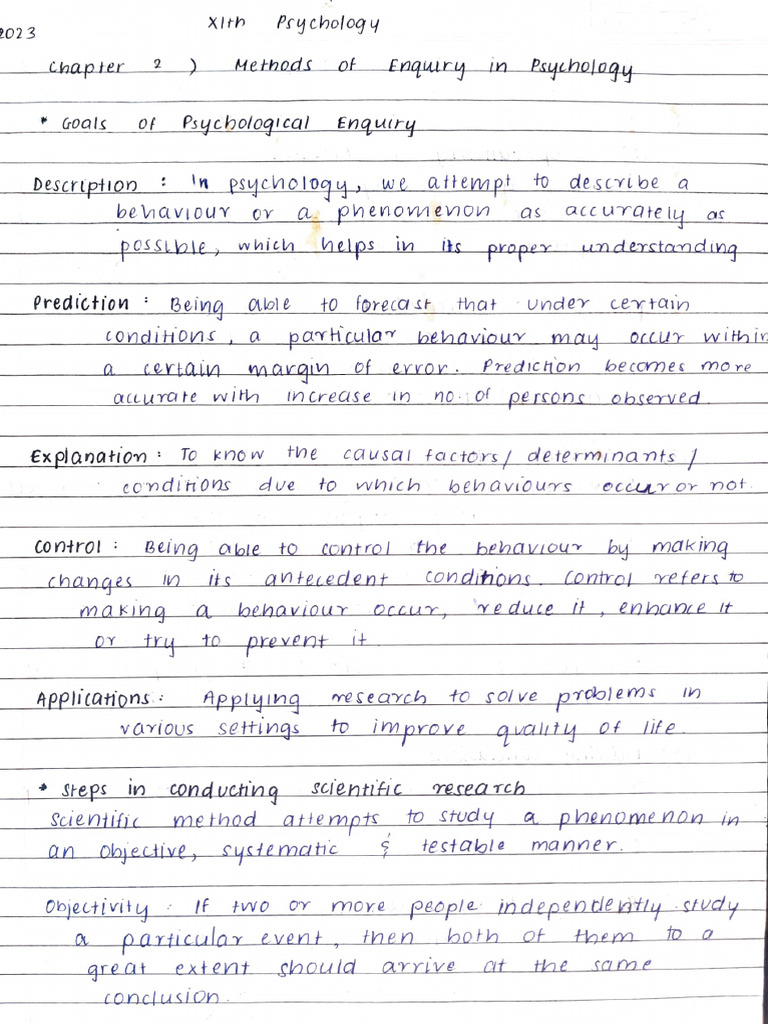 2023
XIth Psychology
Chapter 2 ) Methods of Enquiry in Psychology
* Goals of Psychological Enquiry
Description : In psychology, we attempt to describe a
behaviour or a phenomenon as accurately as
possible, which helps in its proper understanding
Prediction : Being able to forecast that under certain
conditions, a particular behaviour may occur within
a certain margin of error. Prediction becomes more
accurate with increase in no. of persons observed.
Explanation : To know the causal factors/ determinants /
conditions due to which behaviours occur or not.
Control : Being able to control the behaviour by making
changes in its antecedent conditions. Control refers to
making a behaviour occur, reduce it, enhance it
or try to prevent it.
Applications : Applying research to solve problems in
various settings to improve quality of life.
* Steps in conducting scientific research
Scientific method attempts to study a phenomenon in
an objective, systematic & testable manner.
Objectivity : If two or more people independently study
a particular event, then both of them to a
great extent should arrive at the same
conclusion.